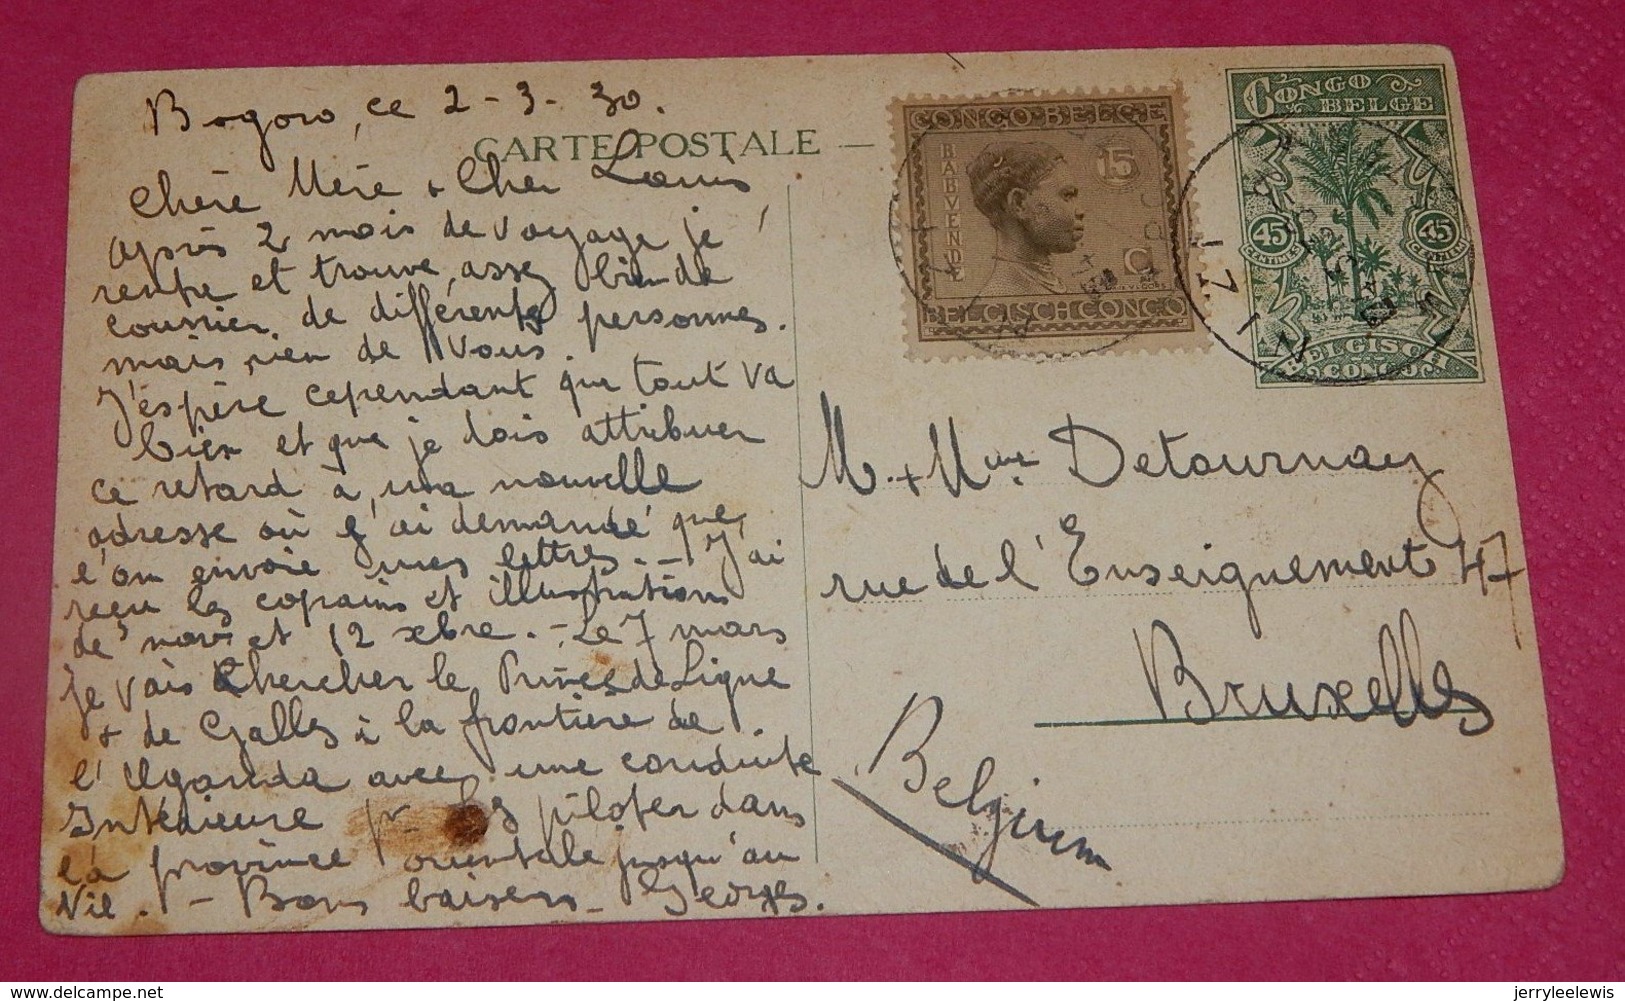 Bogoro, ce 2-3-30.
CARTE POSTALE
Chère Mère & Cher Louis
après 2 mois de voyage je
rentre et trouve assez bien de
courrier de différentes personnes.
mais rien de Vous.
J'espère cependant que tout va
bien et que je dois attribuer
ce retard à une nouvelle
adresse où j'ai demandé que
l'on envoie mes lettres. - J'ai
reçu les copains et illustrations
de nov. et 12 xbre. - Le 7 mars
je vais chercher le Prince de Ligne
& de Galles à la frontière de
l'Uganda avec une conduite
Intérieure pr les piloter dans
la province orientale jusqu'au
Nil. - Bons baisers - Georges.
CONGO BELGE
BABVENDE
15
C
BELGISCH CONGO
CONGO
BELGE
45
CENTIMES
45
CENTIEMEN
BELGISCH
CONGO
M. + Mme Detournay
rue de l'Enseignement 47
Bruxelles
Belgium
delcampe.net
jerryleelewis